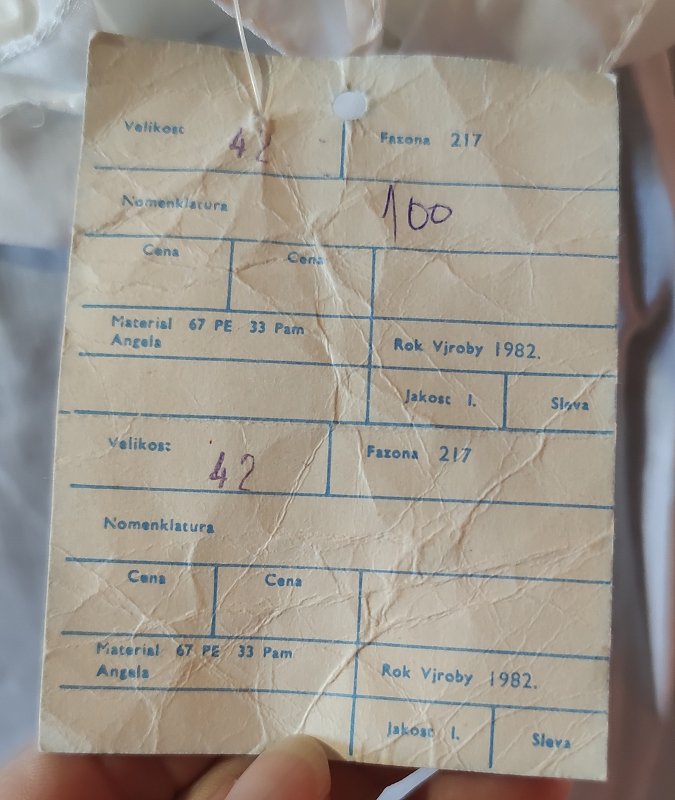 Velikost 42 Fazona 217
Nomenklatura 100
Cena Cena
Material 67 PE 33 Pam
Angela
Rok Vjroby 1982.
Jakost I. Sleva
Velikost 42 Fazona 217
Nomenklatura
Cena Cena
Material 67 PE 33 Pam
Angela
Rok Vjroby 1982.
Jakost I. Sleva